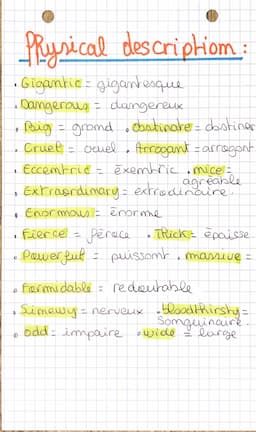 Physical description :
• Gigantic = gigantesque
• Dangerous = dangereux
• Big = grand • obstinate = obstiner
• Cruel = cruel • Arrogant = arrogant
• Eccentric = éxentric • mice =
agréable
• Extraordinary = extrodinaire.
• Enormous = énorme
• Fierce = féroce • Thick = épaisse
• Powerful = puissant • massive =
• Formidable = redoutable
• Sinewy = nerveux • bloodthirsty =
Sanguinaire.
• odd = impaire • wide = large